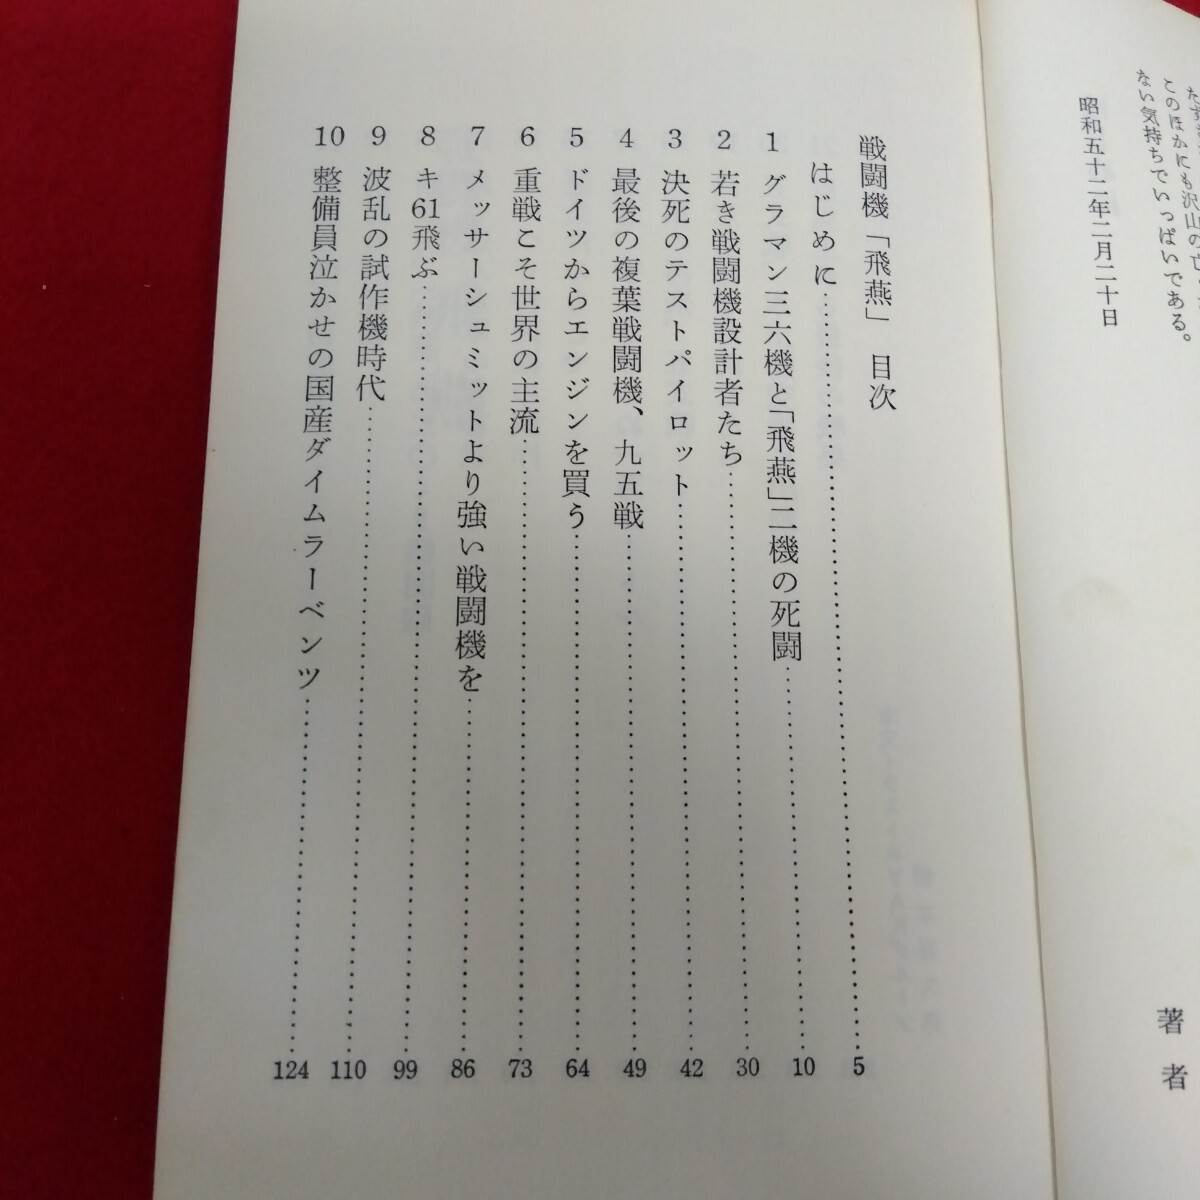 このほかにも沢山の亡
ない気持ちでいっぱいである。
昭和五十二年二月二十日
著者
戦闘機「飛燕」 目次
はじめに……………………5
1 グラマン三六機と「飛燕」二機の死闘……………………10
2 若き戦闘機設計者たち……………………30
3 決死のテストパイロット……………………42
4 最後の複葉戦闘機、九五戦……………………49
5 ドイツからエンジンを買う……………………64
6 重戦こそ世界の主流……………………73
7 メッサーシュミットより強い戦闘機を……………………86
8 キ61飛ぶ……………………99
9 波乱の試作機時代……………………110
10 整備員泣かせの国産ダイムラーベンツ……………………124